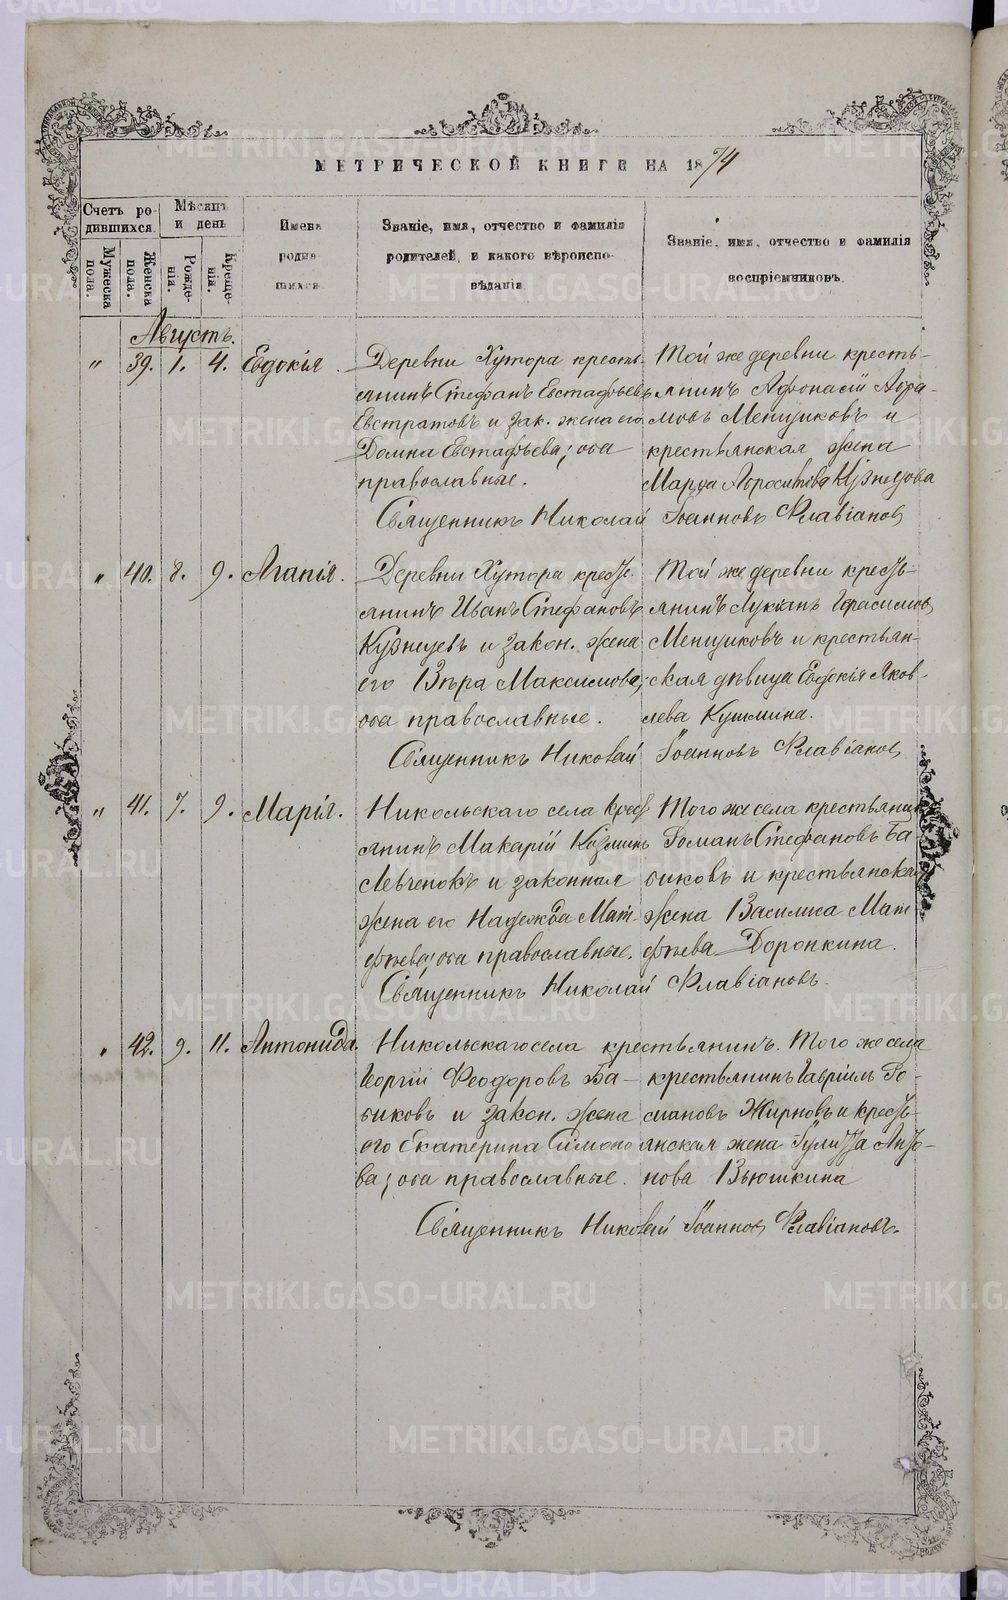 МЕТРИЧЕСКОЙ КНИГИ НА 1874
Счетъ родившихся.
Мужеска пола.
Женска пола.
Мѣсяцъ и день
Рожденія.
Крещенія.
Имена родившихся
Званіе, имя, отчество и фамилія
родителей, и какого вѣроиспо-
вѣданія
Званіе, имя, отчество и фамилія
воспріемниковъ.
Августъ.
" 39. 1. 4. Евдокія.
Деревни Хутора кресть-
янинъ Стефанъ Евстафьевъ
Евстратовъ и зак. жена его
Домна Евстафьева; оба
православные.
Той же деревни кресть-
янинъ Афонасій Абра-
мовъ Менщиковъ и
крестьянская жена
Марѳа Кузнецова
Священникъ Николай Іоанновъ Флавіановъ
" 40. 8. 9. Агапія.
Деревни Хутора крестъ-
янинъ Иванъ Стефановъ
Кузнецевъ и закон. жена
его Вѣра Максимова;
оба православные.
Той же деревни кресть-
янинъ Лукіанъ Герасимовъ
Менщиковъ и крестьян-
ская дѣвица Евдокія Яков-
лева Кушмина.
Священникъ Николай Іоанновъ Флавіановъ
" 41. 7. 9. Марія.
Никольскаго села крест-
янинъ Макарій Козминъ
Левченокъ и законная
жена его Надежда Мат-
фѣева; оба православные.
Того же села крестьянинъ
Романъ Стефановъ Ба-
биковъ и крестьянская
жена Василиса Мат-
фѣева Доронкина.
Священникъ Николай Флавіановъ.
" 42. 9. 11. Антонида.
Никольскаго села крестьянинъ
Георгій Феодоровъ Ба-
биковъ и закон. жена
его Екатерина Симоно-
ва; оба православные.
Того же села
крестьянинъ Гавріилъ Ро-
мановъ Жирновъ и кресть-
янская жена Іулитта Анто-
нова Вьюшкина
Священникъ Николай Іоанновъ Флавіановъ.
METRIKI.GASO-URAL.RU